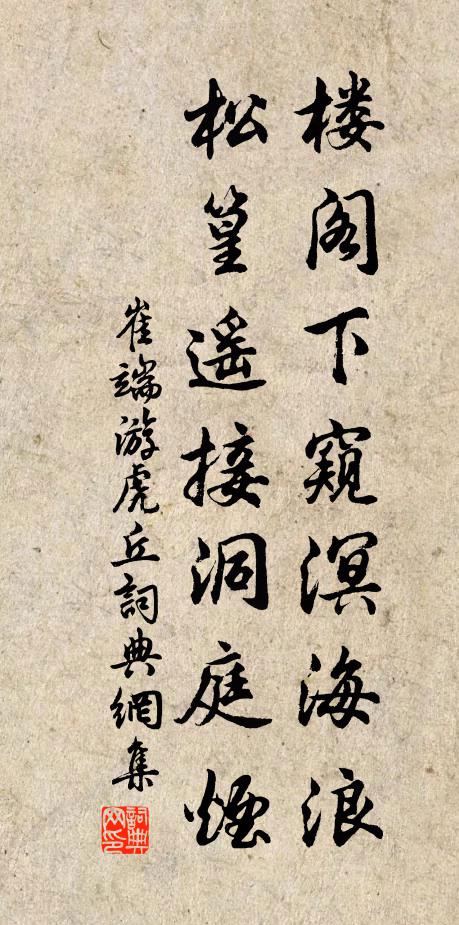 楼阁下窥溟海浪
松篁遥接洞庭煙
崔端游虎丘詞典網集
詞典网印